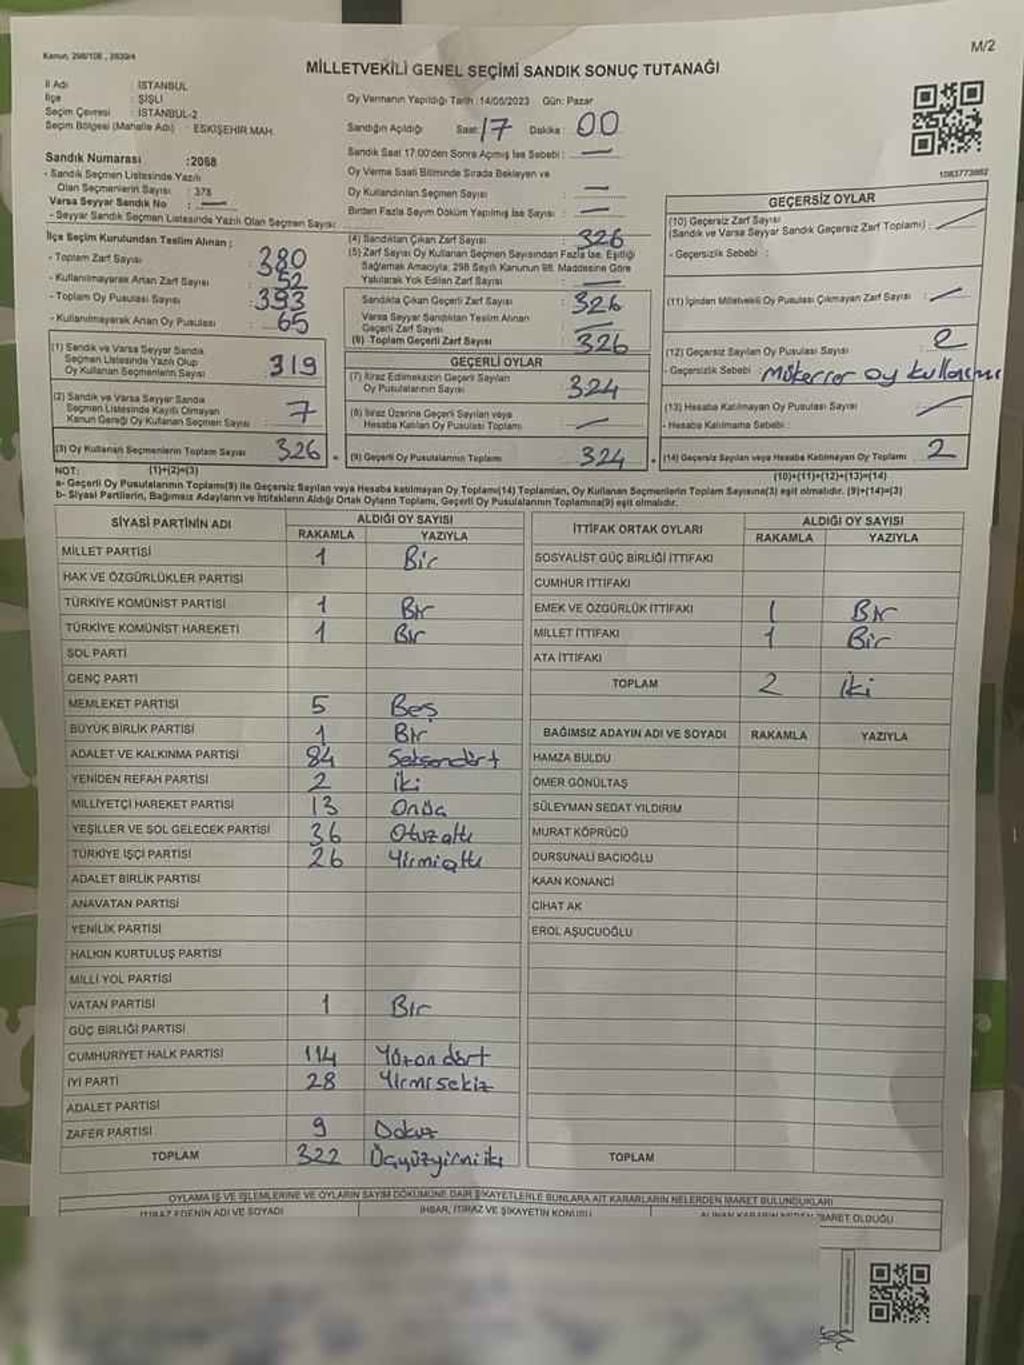 Kanun, 298/106 , 2839/4
M/2
MİLLETVEKİLİ GENEL SEÇİMİ SANDIK SONUÇ TUTANAĞI
İl Adı : İSTANBUL
İlçe : ŞİŞLİ
Seçim Çevresi : İSTANBUL-2
Seçim Bölgesi (Mahalle Adı) : ESKİŞEHİR MAH.
Sandık Numarası :2068
- Sandık Seçmen Listesinde Yazılı
Olan Seçmenlerin Sayısı : 378
Varsa Seyyar Sandık No : —
- Seyyar Sandık Seçmen Listesinde Yazılı Olan Seçmen Sayısı:
İlçe Seçim Kurulundan Teslim Alınan :
- Toplam Zarf Sayısı : 380
- Kullanılmayarak Artan Zarf Sayısı : 52
- Toplam Oy Pusulası Sayısı : 393
- Kullanılmayarak Artan Oy Pusulası : 65
(1) Sandık ve Varsa Seyyar Sandık
Seçmen Listesinde Yazılı Olup
Oy Kullanan Seçmenlerin Sayısı : 319
(2) Sandık ve Varsa Seyyar Sandık
Seçmen Listesinde Kayıtlı Olmayan
Kanun Gereği Oy Kullanan Seçmen Sayısı : 7
(3) Oy Kullanan Seçmenlerin Toplam Sayısı : 326
Oy Vermenin Yapıldığı Tarih :14/05/2023 Gün: Pazar
Sandığın Açıldığı Saat: 17 Dakika : 00
Sandık Saat 17:00'den Sonra Açmış İse Sebebi : —
Oy Verme Saati Bitiminde Sırada Bekleyen ve
Oy Kullandırılan Seçmen Sayısı : —
Birden Fazla Sayım Döküm Yapılmış İse Sayısı : —
(4) Sandıktan Çıkan Zarf Sayısı : 326
(5) Zarf Sayısı Oy Kullanan Seçmen Sayısından Fazla İse, Eşitliği
Sağlamak Amacıyla, 298 Sayılı Kanunun 98. Maddesine Göre
Yakılarak Yok Edilen Zarf Sayısı : —
Sandıkta Çıkan Geçerli Zarf Sayısı : 326
Varsa Seyyar Sandıktan Teslim Alınan
Geçerli Zarf Sayısı : —
(6) Toplam Geçerli Zarf Sayısı : 326
GEÇERLİ OYLAR
(7) İtiraz Edilmeksizin Geçerli Sayılan
Oy Pusulalarının Sayısı : 324
(8) İtiraz Üzerine Geçerli Sayılan veya
Hesaba Katılan Oy Pusulası Toplamı : —
(9) Geçerli Oy Pusulalarının Toplamı : 324
1083773862
GEÇERSİZ OYLAR
(10) Geçersiz Zarf Sayısı
(Sandık ve Varsa Seyyar Sandık Geçersiz Zarf Toplamı) : —
- Geçersizlik Sebebi :
(11) İçinden Milletvekili Oy Pusulası Çıkmayan Zarf Sayısı : —
(12) Geçersiz Sayılan Oy Pusulası Sayısı : 2
- Geçersizlik Sebebi : Mükerrer oy kullanımı
(13) Hesaba Katılmayan Oy Pusulası Sayısı : —
- Hesaba Katılmama Sebebi :
(14) Geçersiz Sayılan veya Hesaba Katılmayan Oy Toplamı : 2
NOT: (1)+(2)=(3)
(10)+(11)+(12)+(13)=(14)
a- Geçerli Oy Pusulalarının Toplamı(9) ile Geçersiz Sayılan veya Hesaba katılmayan Oy Toplamı(14) Toplamları, Oy Kullanan Seçmenlerin Toplam Sayısına(3) eşit olmalıdır. (9)+(14)=(3)
b- Siyasi Partilerin, Bağımsız Adayların ve İttifakların Aldığı Ortak Oyların Toplamı, Geçerli Oy Pusulalarının Toplamına(9) eşit olmalıdır.
SİYASİ PARTİNİN ADI ALDIĞI OY SAYISI
RAKAMLA YAZIYLA
MİLLET PARTİSİ 1 Bir
HAK VE ÖZGÜRLÜKLER PARTİSİ
TÜRKİYE KOMÜNİST PARTİSİ 1 Bir
TÜRKİYE KOMÜNİST HAREKETİ 1 Bir
SOL PARTİ
GENÇ PARTİ
MEMLEKET PARTİSİ 5 Beş
BÜYÜK BİRLİK PARTİSİ 1 Bir
ADALET VE KALKINMA PARTİSİ 84 Seksendört
YENİDEN REFAH PARTİSİ 2 İki
MİLLİYETÇİ HAREKET PARTİSİ 13 Onüç
YEŞİLLER VE SOL GELECEK PARTİSİ 36 Otuzaltı
TÜRKİYE İŞÇİ PARTİSİ 26 Yirmialtı
ADALET BİRLİK PARTİSİ
ANAVATAN PARTİSİ
YENİLİK PARTİSİ
HALKIN KURTULUŞ PARTİSİ
MİLLİ YOL PARTİSİ
VATAN PARTİSİ 1 Bir
GÜÇ BİRLİĞİ PARTİSİ
CUMHURİYET HALK PARTİSİ 114 Yüzon dört
İYİ PARTİ 28 Yirmisekiz
ADALET PARTİSİ
ZAFER PARTİSİ 9 Dokuz
TOPLAM 322 Üçyüzyirmiiki
İTTİFAK ORTAK OYLARI ALDIĞI OY SAYISI
RAKAMLA YAZIYLA
SOSYALİST GÜÇ BİRLİĞİ İTTİFAKI
CUMHUR İTTİFAKI
EMEK VE ÖZGÜRLÜK İTTİFAKI 1 Bir
MİLLET İTTİFAKI 1 Bir
ATA İTTİFAKI
TOPLAM 2 İki
BAĞIMSIZ ADAYIN ADI VE SOYADI RAKAMLA YAZIYLA
HAMZA BULDU
ÖMER GÖNÜLTAŞ
SÜLEYMAN SEDAT YILDIRIM
MURAT KÖPRÜCÜ
DURSUNALİ BACIOĞLU
KAAN KONANCİ
CİHAT AK
EROL AŞUCUOĞLU
TOPLAM
OYLAMA İŞ VE İŞLEMLERİNE VE OYLARIN SAYIM DÖKÜMÜNE DAİR ŞİKAYETLERLE BUNLARA AİT KARARLARIN NELERDEN İBARET BULUNDUKLARI
İTİRAZ EDENİN ADI VE SOYADI İHBAR, İTİRAZ VE ŞİKAYETİN KONUSU ALINAN KARARIN NEDEN İBARET OLDUĞU